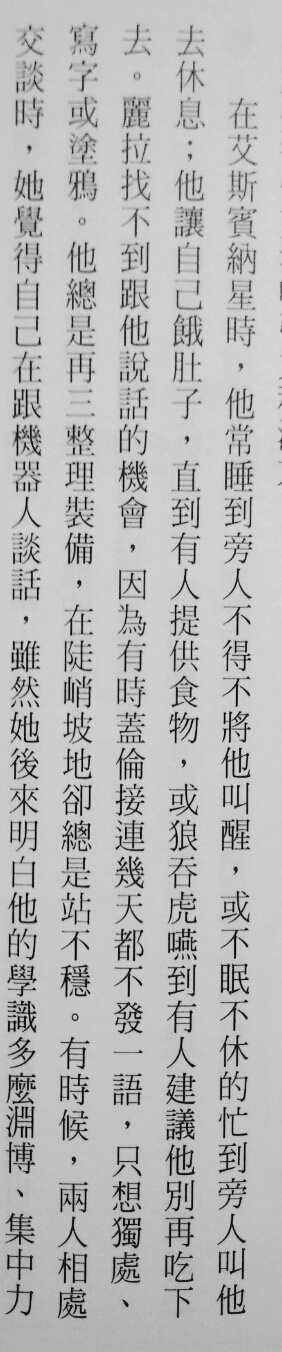 在艾斯賓納星時，他常睡到旁人不得不將他叫醒，或不眠不休的忙到旁人叫他
去休息；他讓自己餓肚子，直到有人提供食物，或狼吞虎嚥到有人建議他別再吃下
去。麗拉找不到跟他說話的機會，因為有時蓋倫接連幾天都不發一語，只想獨處、
寫字或塗鴉。他總是再三整理裝備，在陡峭坡地卻總是站不穩。有時候，兩人相處
交談時，她覺得自己在跟機器人談話，雖然她後來明白他的學識多麼淵博、集中力